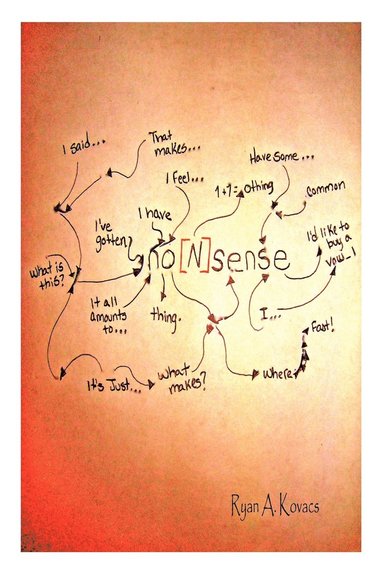 I said...
That
makes...
Have some...
I feel...
1+1= othing
Common
I have
I've
gotten
I'd like to
buy a
vow_l
no[N]sense
What is
this?
It all
amounts
to...
thing.
I...
Fast!
It's Just...
What
makes?
Where
Ryan A. Kovacs